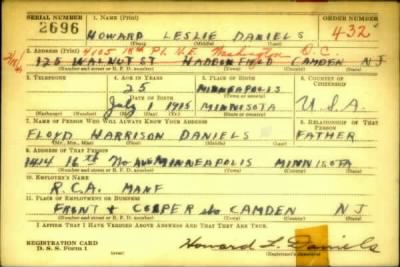 SERIAL NUMBER
1. NAME (Print)
ORDER NUMBER
2696
HOWARD LESLIE DANIELS
432
(First) (Middle) (Last)
2. ADDRESS (Print)
4105 18th Pl. N.E. Washington D.C.
125 WALNUT ST HADDONFIELD CAMDEN NJ
(Number and street or R. F. D. number) (Town) (County) (State)
3. TELEPHONE
4. AGE IN YEARS
5. PLACE OF BIRTH
6. COUNTRY OF CITIZENSHIP
25
MINNEAPOLIS
DATE OF BIRTH
(Town or county)
July 1 1915
MINNESOTA
U.S.A.
(Exchange) (Number)
(Mo.) (Day) (Yr.)
(State or country)
7. NAME OF PERSON WHO WILL ALWAYS KNOW YOUR ADDRESS
8. RELATIONSHIP OF THAT PERSON
FLOYD HARRISON DANIELS
FATHER
(Mr., Mrs., Miss) (First) (Middle) (Last)
9. ADDRESS OF THAT PERSON
1414 16th No AVE MINNEAPOLIS MINNISOTA
(Number and street or R. F. D. number) (Town) (County) (State)
10. EMPLOYER'S NAME
R.C.A. MANF
11. PLACE OF EMPLOYMENT OR BUSINESS
FRONT + COOPER sts CAMDEN NJ
(Number and street or R. F. D. number) (Town) (County) (State)
I AFFIRM THAT I HAVE VERIFIED ABOVE ANSWERS AND THAT THEY ARE TRUE.
REGISTRATION CARD
D. S. S. Form 1
Howard L. Daniels
(Registrant's signature)